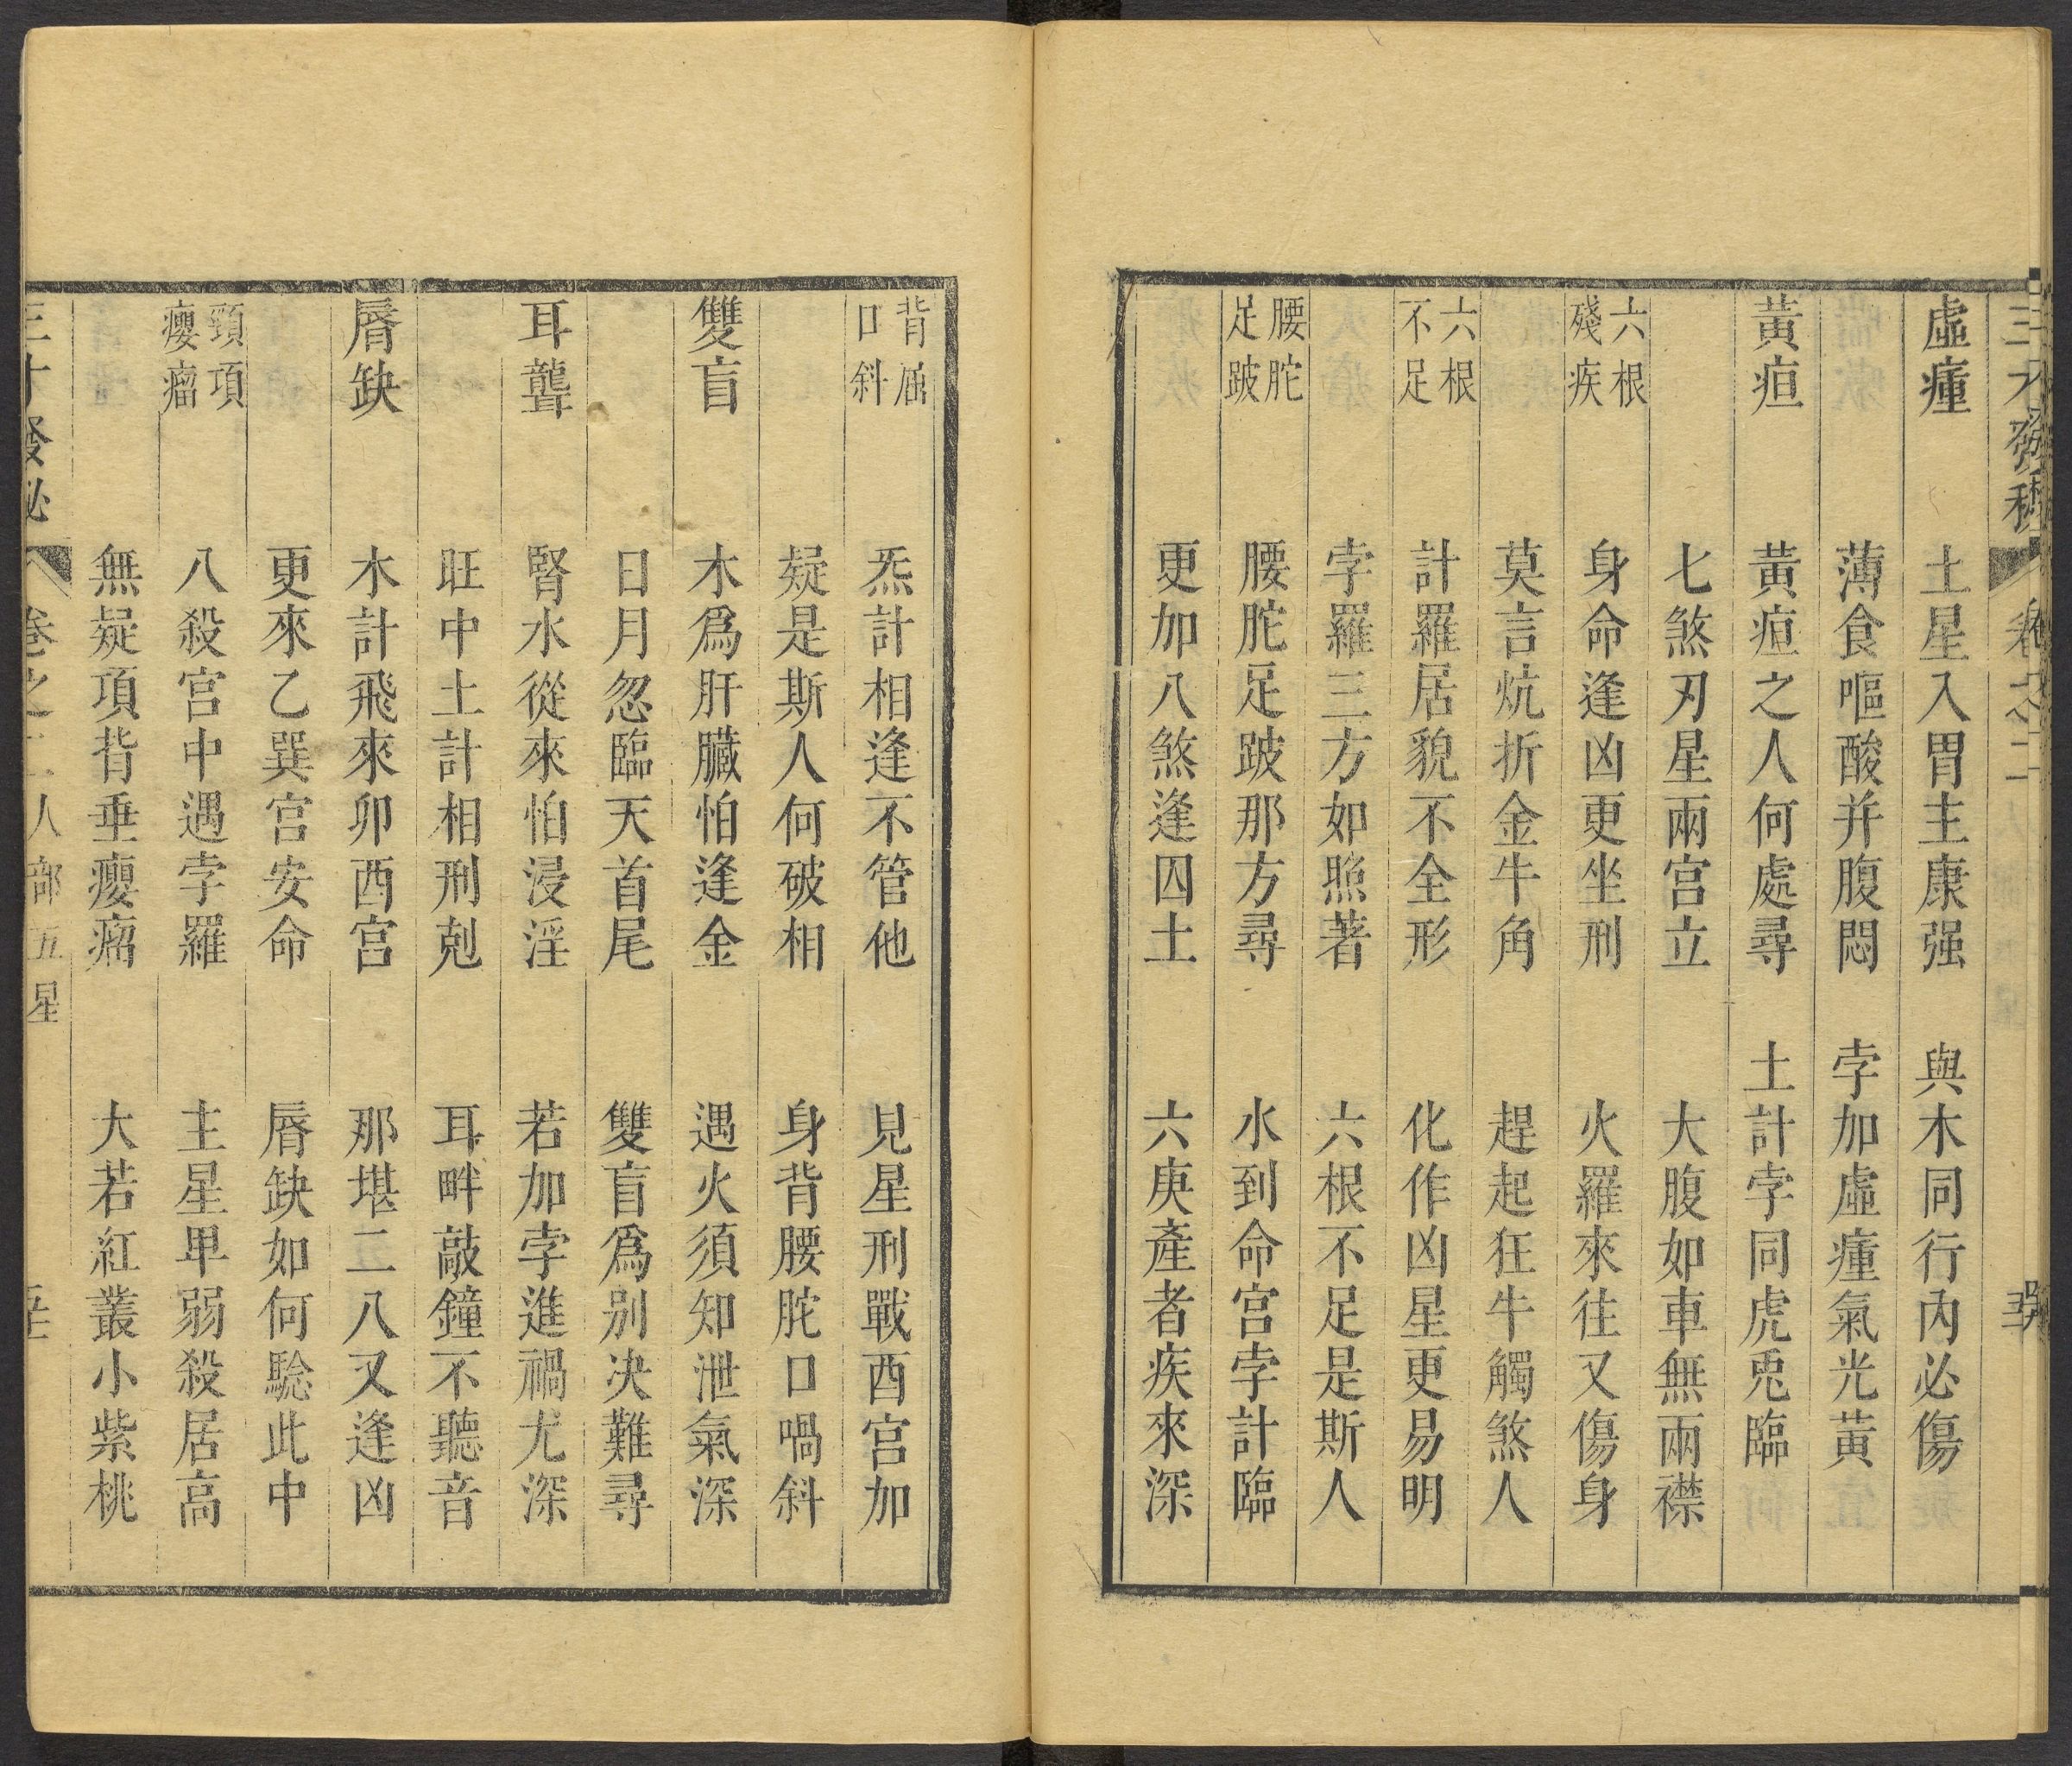 虛瘇 土星入胃主康强 與木同行內必傷
薄食嘔酸并腹悶 孛加虛瘇氣光黃
黃疸 黃疸之人何處尋 土計孛同虎兎臨
七煞刃星兩宮立 大腹如車無兩襟
六根殘疾 身命逢凶更坐刑 火羅來往又傷身
莫言炕折金牛角 趕起狂牛觸煞人
六根不足 計羅居貌不全形 化作凶星更易明
孛羅三方如照著 六根不足是斯人
腰胣足跛 腰胣足跛那方尋 水到命宮孛計臨
更加八煞逢囚土 六庚產者疾來深
背屈口斜 炁計相逢不管他 見星刑戰酉宮加
疑是斯人何破相 身背腰胣口喎斜
雙盲 木爲肝臟怕逢金 遇火須知泄氣深
日月忽臨天首尾 雙盲爲別决難尋
耳聾 腎水從來怕浸淫 若加孛進禍尤深
旺中土計相刑剋 耳畔敲鐘不聽音
唇缺 木計飛來卯酉宮 那堪二八又逢凶
更來乙巽宮安命 唇缺如何驗此中
頸項癭瘤 八殺宮中遇孛羅 主星卑弱殺居高
無疑項背垂癭瘤 大若紅叢小紫桃
三才發秘 卷之二 人部五星